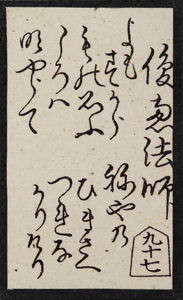 俊恵法師
九十七
よもすから
もの思ふ
ころハ
明やらて
ねや乃
ひまさへ
つれな
かりけり